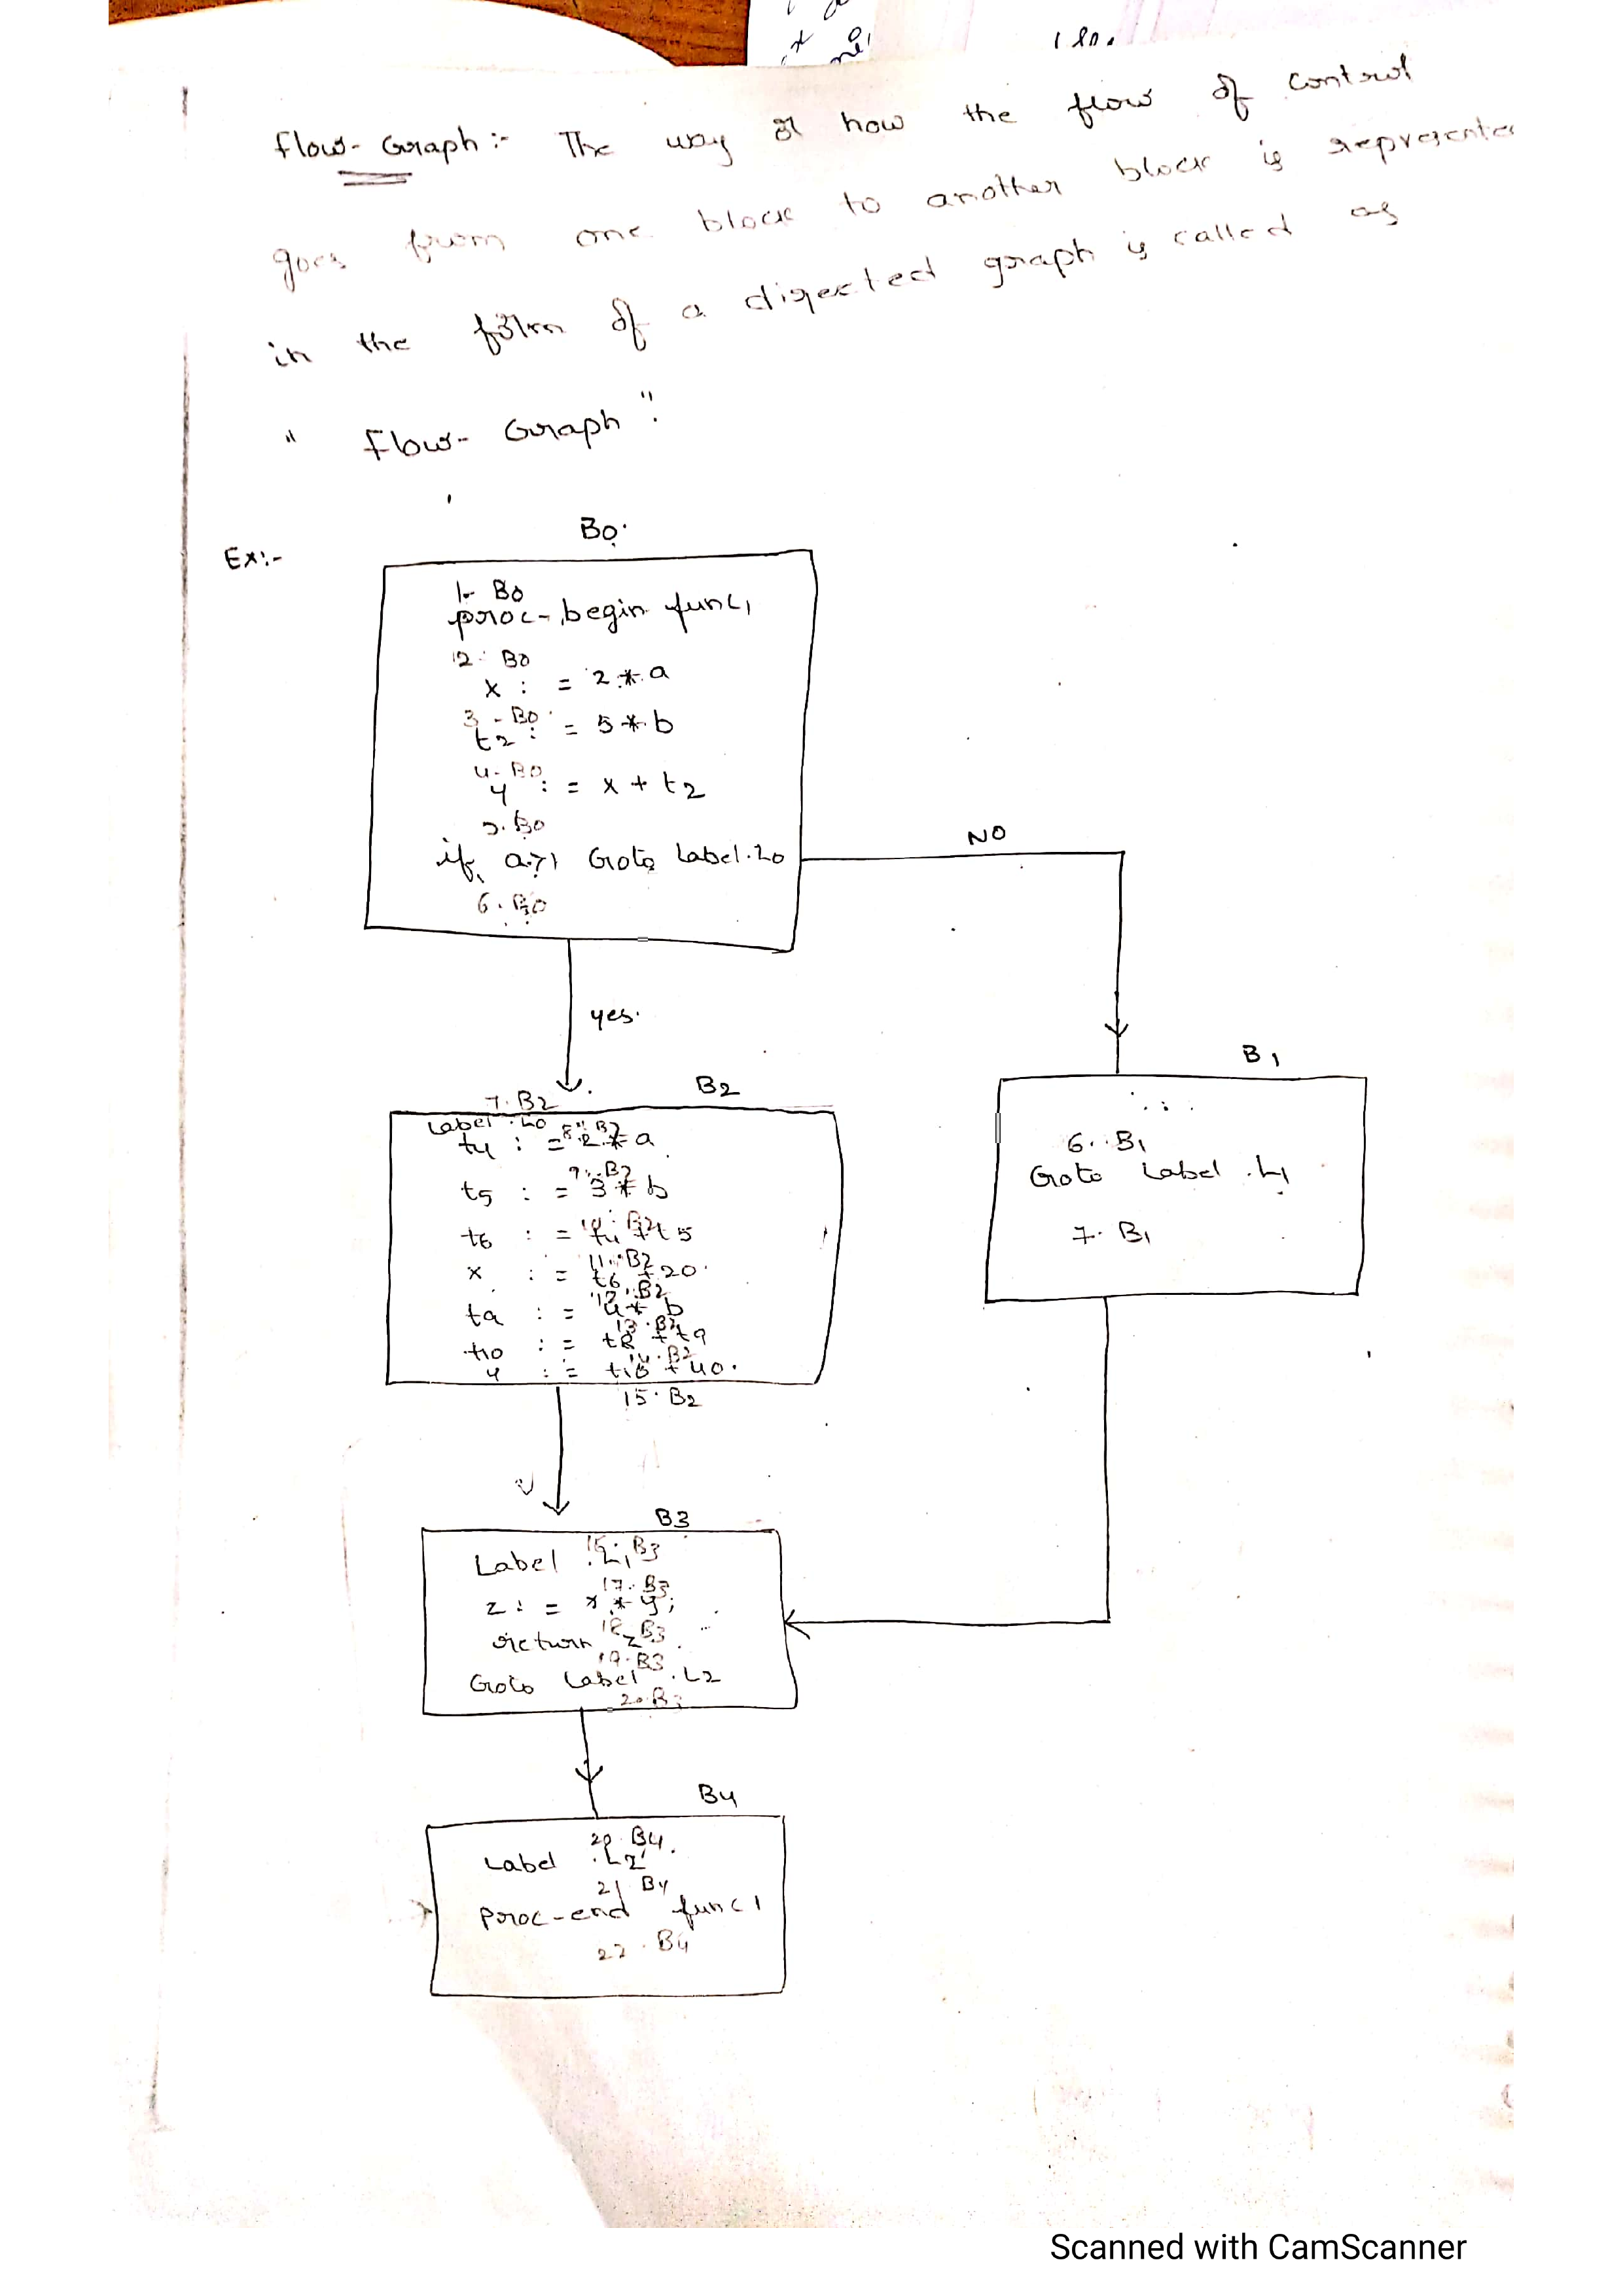 Flow-Graph :- The way or how the flow of control
goes from one block to another block is represente
in the form of a directed graph is called as
" Flow-Graph ".
Ex:-
B0
1. B0
proc-begin func1
2. B0
x : = 2 * a
3. B0
t2 : = 5 * b
4. B0
y : = x + t2
5. B0
if a>1 Goto Label.L0
6. B0
NO
yes.
B1
6. B1
Goto Label .L1
7. B1
B2
7. B2
Label .L0
8. B2
t4 : = 2 * a
9. B2
t5 : = 3 * b
10. B2
t6 : = t4 + t5
11. B2
x : = t6 + 20
12. B2
t9 : = 4 * b
13. B2
t10 : = t8 + t9
14. B2
y : = t10 + 40.
15. B2
B3
Label .L1
B3
17. B3
z : = x * y;
18. B3
return z
19. B3
Goto Label .L2
20. B3
B4
20. B4
Label .L2
21 B4
Proc-end func1
22. B4
Scanned with CamScanner